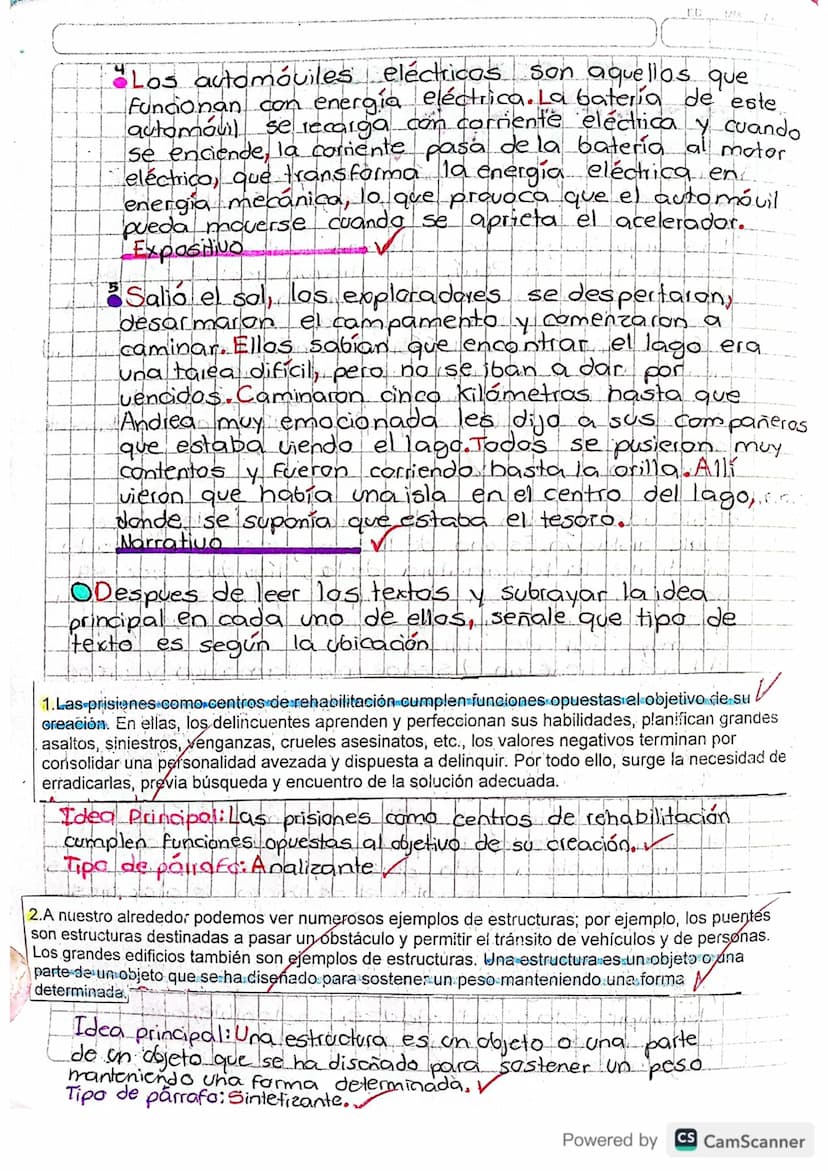 4
Los automóviles eléctricos son aquellos que
funcionan con energía eléctrica. La batería de este
automóvil se recarga con corriente eléctrica y cuando
se enciende, la corriente pasa de la batería al motor
eléctrico, que transforma la energía eléctrica en
energía mecánica, lo que provoca que el automóvil
pueda moverse cuando se aprieta el acelerador.
Expositivo
5
Salió el sol, los exploradores se despertaron,
desarmaron el campamento y comenzaron a
caminar. Ellos sabían que encontrar el lago era
una tarea difícil, pero no se iban a dar por
vencidos. Caminaron cinco kilómetros hasta que
Andrea muy emocionada les dijo a sus compañeros
que estaba viendo el lago. Todos se pusieron muy
contentos y fueron corriendo hasta la orilla. Allí
vieron que había una isla en el centro del lago,
donde se suponía que estaba el tesoro.
Narrativo
Despues de leer los textos y subrayar la idea
principal en cada uno de ellos, señale que tipo de
texto es según la ubicación
1.Las prisiones como centros de rehabilitación cumplen funciones opuestas al objetivo de su
creación. En ellas, los delincuentes aprenden y perfeccionan sus habilidades, planifican grandes
asaltos, siniestros, venganzas, crueles asesinatos, etc., los valores negativos terminan por
consolidar una personalidad avezada y dispuesta a delinquir. Por todo ello, surge la necesidad de
erradicarlas, previa búsqueda y encuentro de la solución adecuada.
Idea Principal: Las prisiones como centros de rehabilitación
cumplen funciones opuestas al objetivo de su creación.
Tipo de párrafo: Analizante
2.A nuestro alrededor podemos ver numerosos ejemplos de estructuras; por ejemplo, los puentes
son estructuras destinadas a pasar un obstáculo y permitir el tránsito de vehículos y de personas.
Los grandes edificios también son ejemplos de estructuras. Una estructura es un objeto o una
parte de un objeto que se ha diseñado para sostener un peso manteniendo una forma
determinada.
Idea principal: Una estructura es un objeto o una parte
de un objeto que se ha diseñado para sostener un peso
manteniendo una forma determinada.
Tipo de párrafo: Sintetizante.
Powered by CS CamScanner